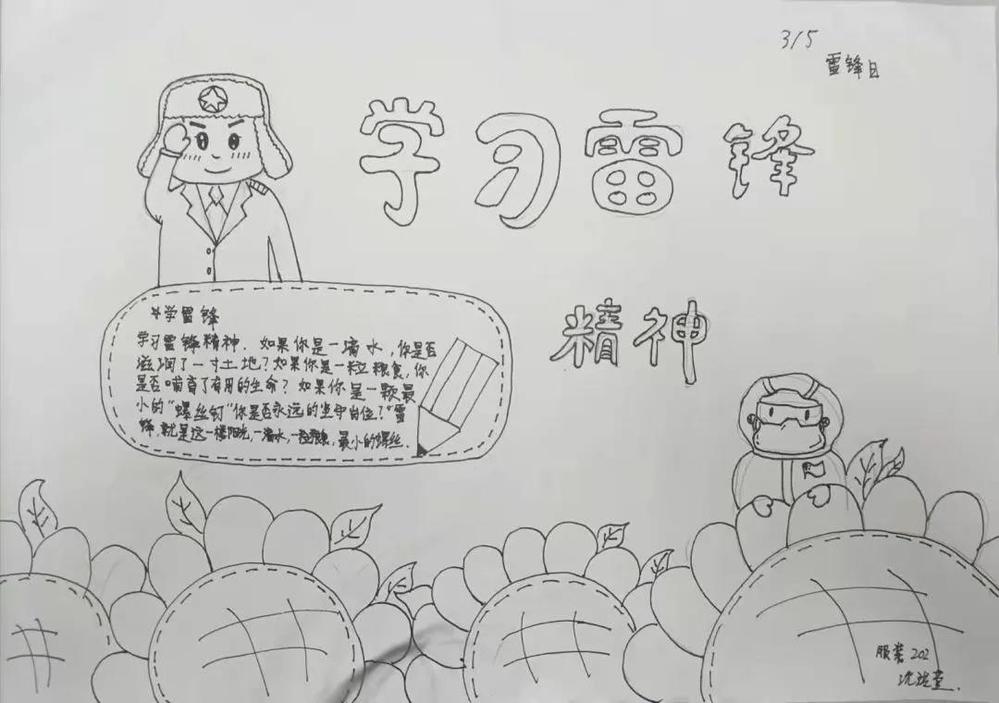 3/5
雷锋日
学习雷锋
精神
学雷锋
学习雷锋精神.如果你是一滴水,你是否
滋润了一寸土地?如果你是一粒粮食,你
是否哺育了有用的生命?如果你是一颗最
小的“螺丝钉”你是否永远的坚守岗位?“雷
锋,就是这一缕阳光,一滴水,一粒粮食,最小的螺丝.
服装202